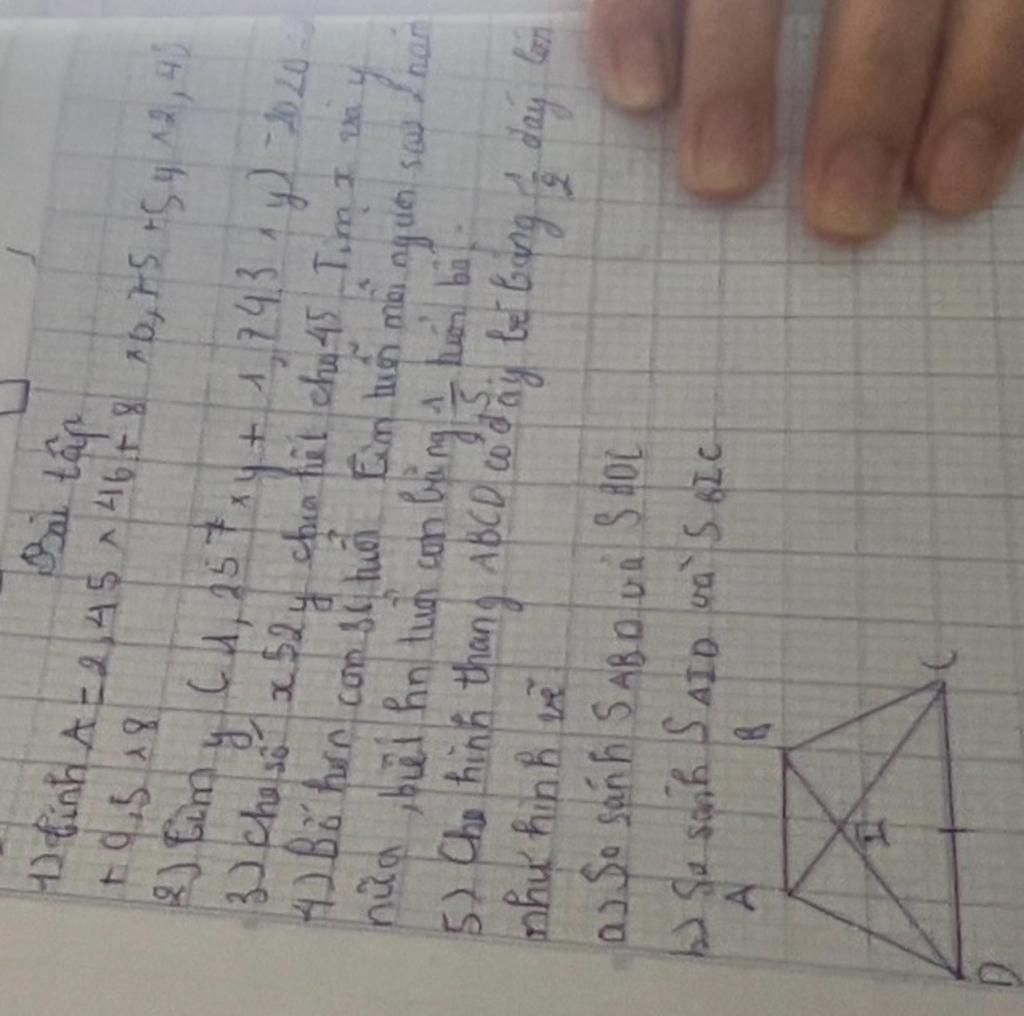 Bài tập
1) Tính A = 2,45 x 46 + 8 x 0,75 + 54 x 2,45
+ 0,5 x 8
2) Tìm y (1,257 x y + 1,743 x y)
3) Cho số x32y chia hết cho 45. Tìm x và y
4) Bố hơn con 31 tuổi. Tìm tuổi mỗi người sau 2 năm
nữa, biết hn tuổi con bằng 1/5 tuổi bố.
5) Cho hình thang ABCD có đáy bé bằng 1/2 đáy lớn
như hình vẽ
a) So sánh S ABD và S BDC
b) So sánh S AID và S BIC
A B
I
D C